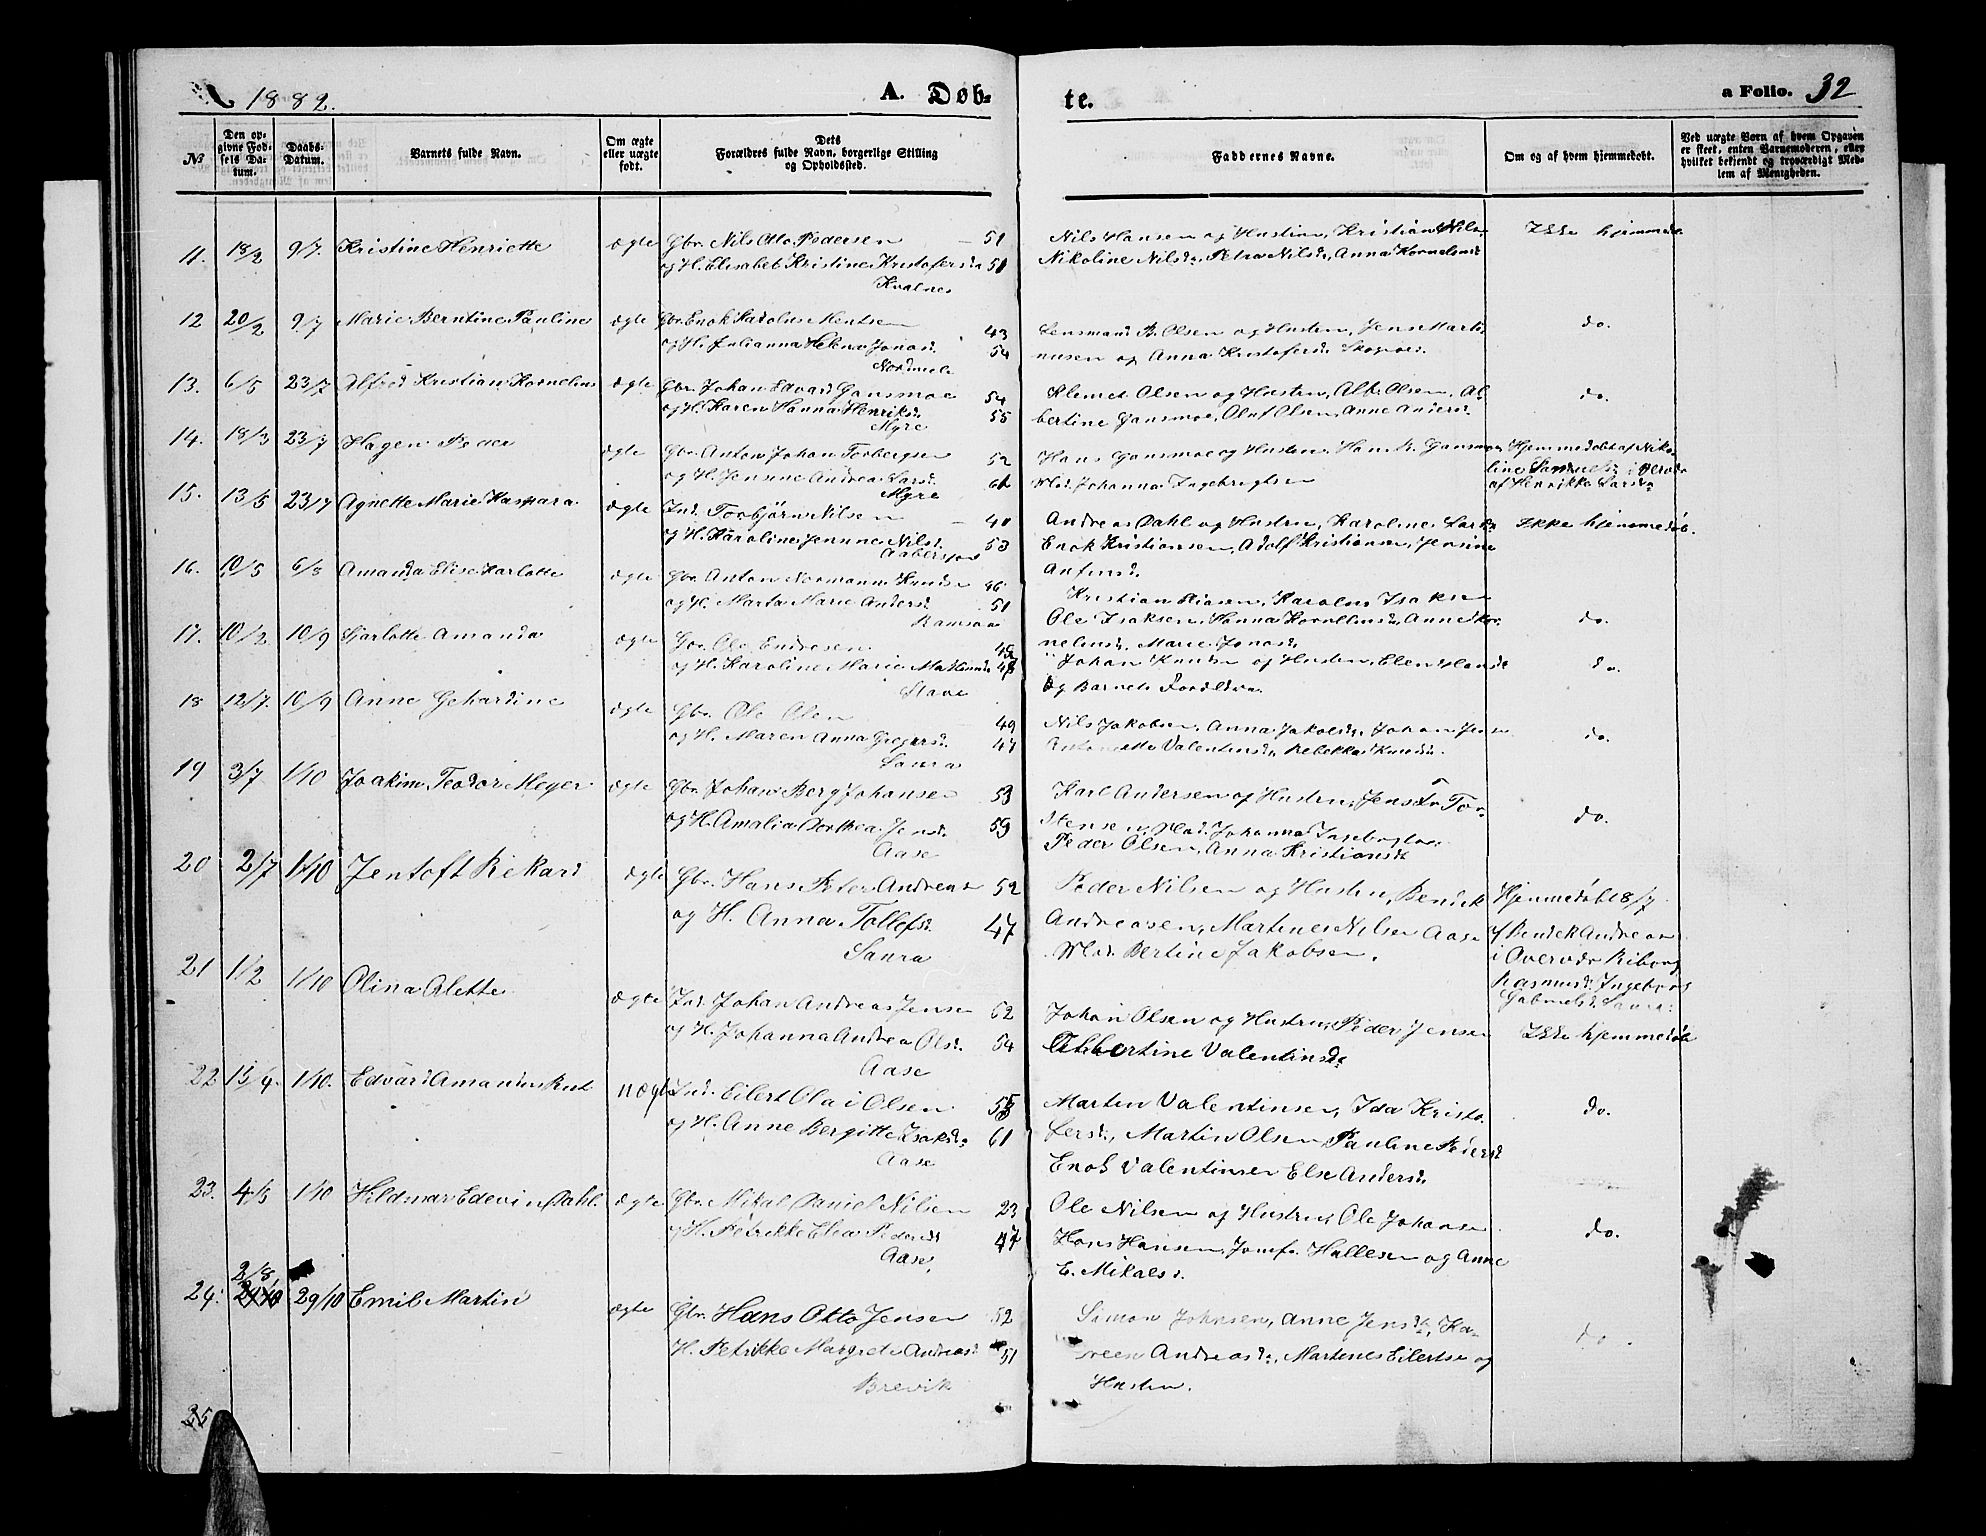 1882.
A. Døb-
te.
a Folio. 32
№
Den op-
givne Fød-
sels Da-
tum.
Daabs-
Datum.
Barnets fulde Navn.
Om ægte
eller uægte
født.
Dets
Forældres fulde Navn, borgerlige Stilling
og Opholdssted.
Faddernes Navne.
Om og af hvem hjemmedøbt.
Ved uægte Børn af hvem Opgaven
er skeet, enten Barnemoderen, eller
hvilket bekjendt og troværdigt Med-
lem af Menigheden.
11. 18/2 9/7. Kristine Henriette ægte Gbr. Nils Otto Pedersen 51
og H. Elisabet Kristine Kristofersd. 51
Kvalnes
Nils Hansen og Hustru, Kristian Nils.
Nikoline Nilsd., Petra Nilsd., Anna Kornelius
Ikke hjemmed.
12 20/2 9/7 Marie Berntine Pauline ægte Gbr. Enok Karolus Mentsen 43
og H. Julianna Helena Jonasd. 54
Nordmele
Lensmand B. Olsen og Hustru, Jens Marti-
nusen og Anna Kristofersd. Skogvol.
do.
13. 6/5 23/7 Alfred Kristian Kornelius ægte Gbr. Johan Edvard Gansmoe 54
og H. Karen Hanna Henriksd. 55
Myre
Klemet Olsen og Hustru, Alb. Olsen, Al
bertine Gansmoe, Oluf Olsen, Anne Andersd.
do.
14. 18/3 23/7 Hagen Peder ægte Gbr. Anton Johan Torbergsen 52
og H. Jensine Andrea Larsd.
Myre
Hans Gansmoe og Hustru, Hans P. Gansmoe
Mad. Johanna Ingebrigtsen
Hjemmedøbt af Niko-
line Samuelsd. i Overv.
af Henrikke Larsd.
15. 13/5 23/7 Agnette Marie Kaspara ægte Ind. Torbjørn Nilsen 40
og H. Karoline Jennne Nilsd. 53
Aabergsjord
Andreas Dahl og Hustru, Karoline Lark.
Enok Kristiansen, Adolf Kristiansen, Jensine
Anfinsd.
Ikke hjemmedøb.
16. 10/5 6/8 Amanda Elise Karlotte ægte Gbr. Anton Normann Knudsen 46
og H. Marta Marie Andersd. 51
Ramsaa
Kristian Isaksen, Karolus Isaksen
Ole Isaksen, Hanna Kornelinsd., Anne Kor-
nelinsd., Marie Jonasd.
do.
17. 10/2 10/9 Sjarlotte Amanda ægte Gbr. Ole Endresen 45
og H. Karoline Marie Mathinsd. 48
Stave
Johan Knudsen og Hustru, Elen Hansd.
og Barnets Forældre.
do.
18 12/7. 10/9 Anne Gehardine ægte Gbr. Ole Olsen 49
og H. Maren Anna Gregersd. 47
Saura
Nils Jakobsen, Anna Jakobsd., Johan Jens.
Antonette Valentinsd., Rebekka Knudsd.
do.
19 3/7 1/10 Joakim Teodor Meyer ægte Gbr. Johan Berg Johansen 53
og H. Amalia Dorthea Jensd. 59
Aase
Karl Andersen og Hustru, Jens Fr. Tor-
stensen, Mad. Johanna Ingebrigtsen
Peder Olsen, Anna Kristiansd.
do.
20 2/7 1/10 Jentoft Rikard ægte Gbr. Hans Peter Andreas 52
og H. Anna Tollefsd. 47
Saura
Peder Nilsen og Hustru, Benrik
Andreasen, Martines Nilsen Aase
Mad. Bertine Jakobsen.
Hjemmedøbt 8/7
af Benrik Andreas
i Overvær Riborg
Rasmusd. Ingeborg
Gabrielsd. Saura.
21 1/2 1/10 Olina Alette ægte Ind. Johan Andreas Jensen 52
og H. Johanna Andrea Olsd. 54
Aase
Johan Olsen og Hustru, Peder Jensen
Albertine Valentinsd.
Ikke hjemmedøbt
22 15/4. 1/10. Edvard Amandus Knt. uægte Ind. Eilert Olai Olsen 55
og H. Anne Bergitte Isaksd. 61
Aase
Martin Valentinsen, Ida Kristo-
fersd., Martin Olsen Pauline Pedersd.
Enok Valentinsen Else Andersd.
do.
23. 4/5 1/10 Hildmar Edevin Dahl. ægte Gbr. Mikal Daniel Nilsen 23
og H. Petrikke Elea Pedersd. 47
Aase.
Ole Nilsen og Hustru, Ole Johansen
Hans Hansen, Jomfr. Hallesen og Anne
E. Mikalsd.
do.
24. 2/8 29/10 Emil Martin ægte Gbr. Hans Otto Jensen 52
H. Petrikke Margrete Andreasd. 51
Brevik
Simon Johnsen, Anne Jensd., Ka-
reen Andreasd., Martenes Eilertsen og
Hustru.
do.
25